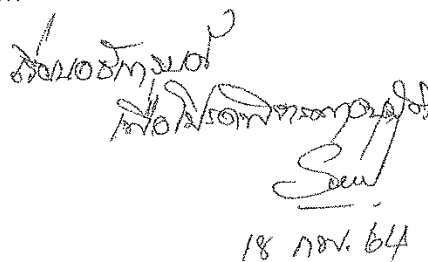 เรียนอธิการบดี
เพื่อโปรดพิจารณาอนุมัติ
18 กพ. 64